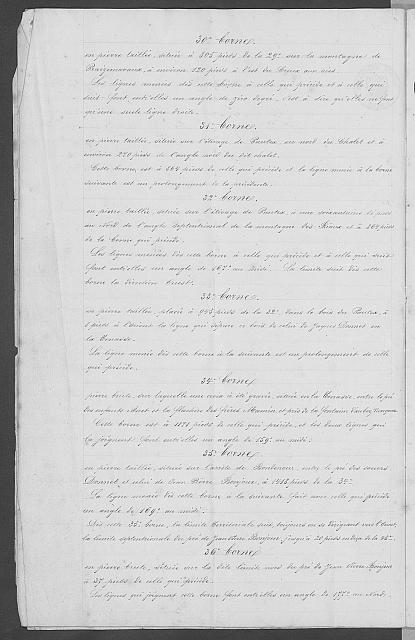 30e Borne
en pierre taillée, située à 305 pieds de la 29e sur la montagne de
à environ 120 pieds à l'est du Creux aux
Les lignes menées dès cette borne à celle qui précède et à celle qui
suit font entr'elles un angle de zéro degré, c'est à dire qu'elles ne font
qu'une seule ligne droite.
31e Borne
en pierre taillée, située sur l'alpage de au nord du Chalet et à
environ 220 pieds de l'angle nord du dit chalet.
Cette borne est à 564 pieds de celle qui précède et la ligne menée à la borne
suivante est un prolongement de la précédente.
32e Borne
en pierre taillée, située sur l'alpage de à une soixantaine de pieds
au Nord de l'angle septentrional de la montagne des et à 562 pieds
de la borne qui précède.
Les lignes menées dès cette borne à celle qui précède et à celle qui suit
font entr'elles un angle de 167° au midi. La limite suit dès cette
borne la direction Ouest.
33e Borne
en pierre taillée, placée à 945 pieds de la 32e dans le bois des à
pieds à l'orient la ligne qui sépare ce bois de celui de Jaques Donnet en
la
La ligne menée dès cette borne à la suivante est un prolongement de celle
qui précède.
34e Borne
pierre brute, sur laquelle une croix a été gravée, située en la entre le pré
des enfants et la des frères et près de la fontaine
Cette borne est à 1171 pieds de celle qui précède, et les deux lignes qui
la joignent font entr'elles un angle de 159° au midi.
35e Borne
en pierre taillée, située sur l'arête de entre le pré des soeurs
Donnet et celui de Jean Pierre à 1415 pieds de la 34e
La ligne menée dès cette borne à la suivante fait avec celle qui précède
un angle de 169° au midi.
Dès cette 35e borne, la limite territoriale suit, toujours en se dirigeant vers l'Ouest,
la limite septentrionale du pré de Jean Pierre jusqu'à 20 pieds en deça de la
36e Borne
en pierre brute, située sur la dite limite nord du pré de Jean Pierre
à 37 pieds de celle qui précède.
Les lignes qui joignent cette borne font entr'elles un angle de 175° au Nord.